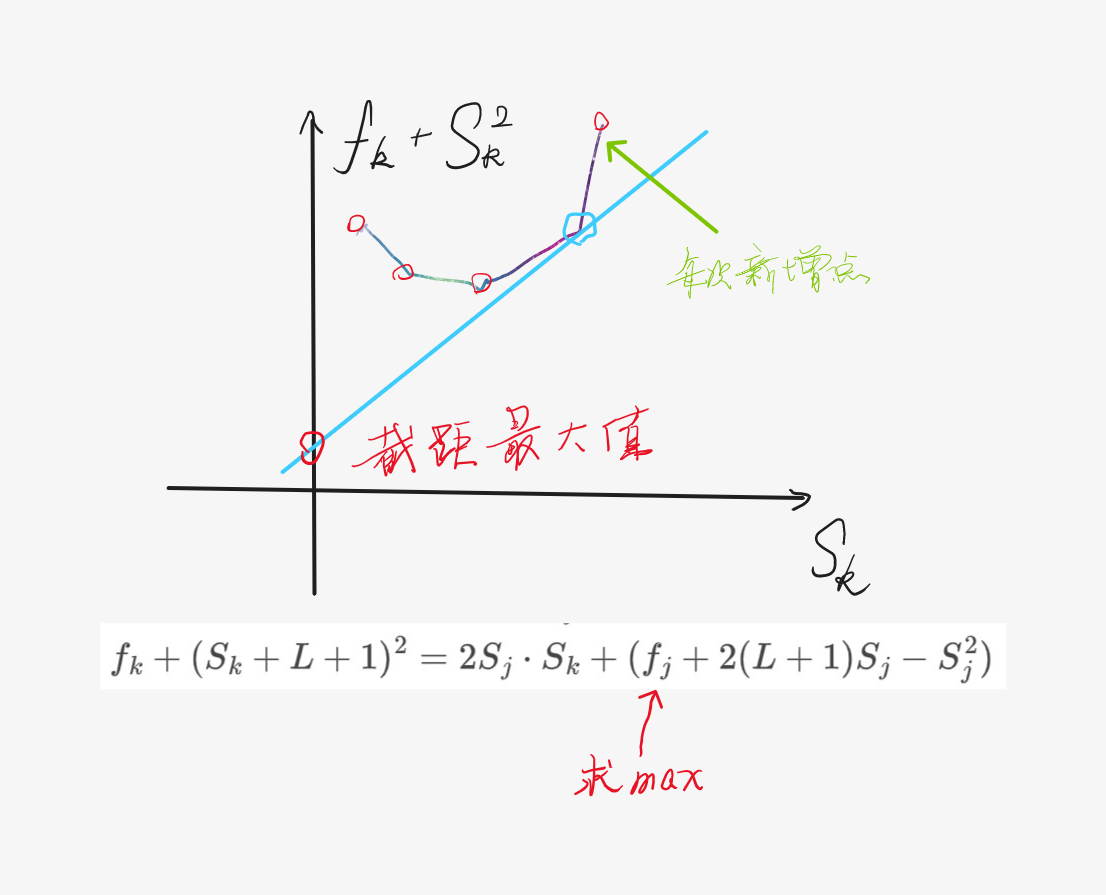 f_k + S_k^2
每次新增点
截距最大值
S_k
f_k + (S_k + L + 1)^2 = 2S_j · S_k + (f_j + 2(L + 1)S_j − S_j^2)
求max